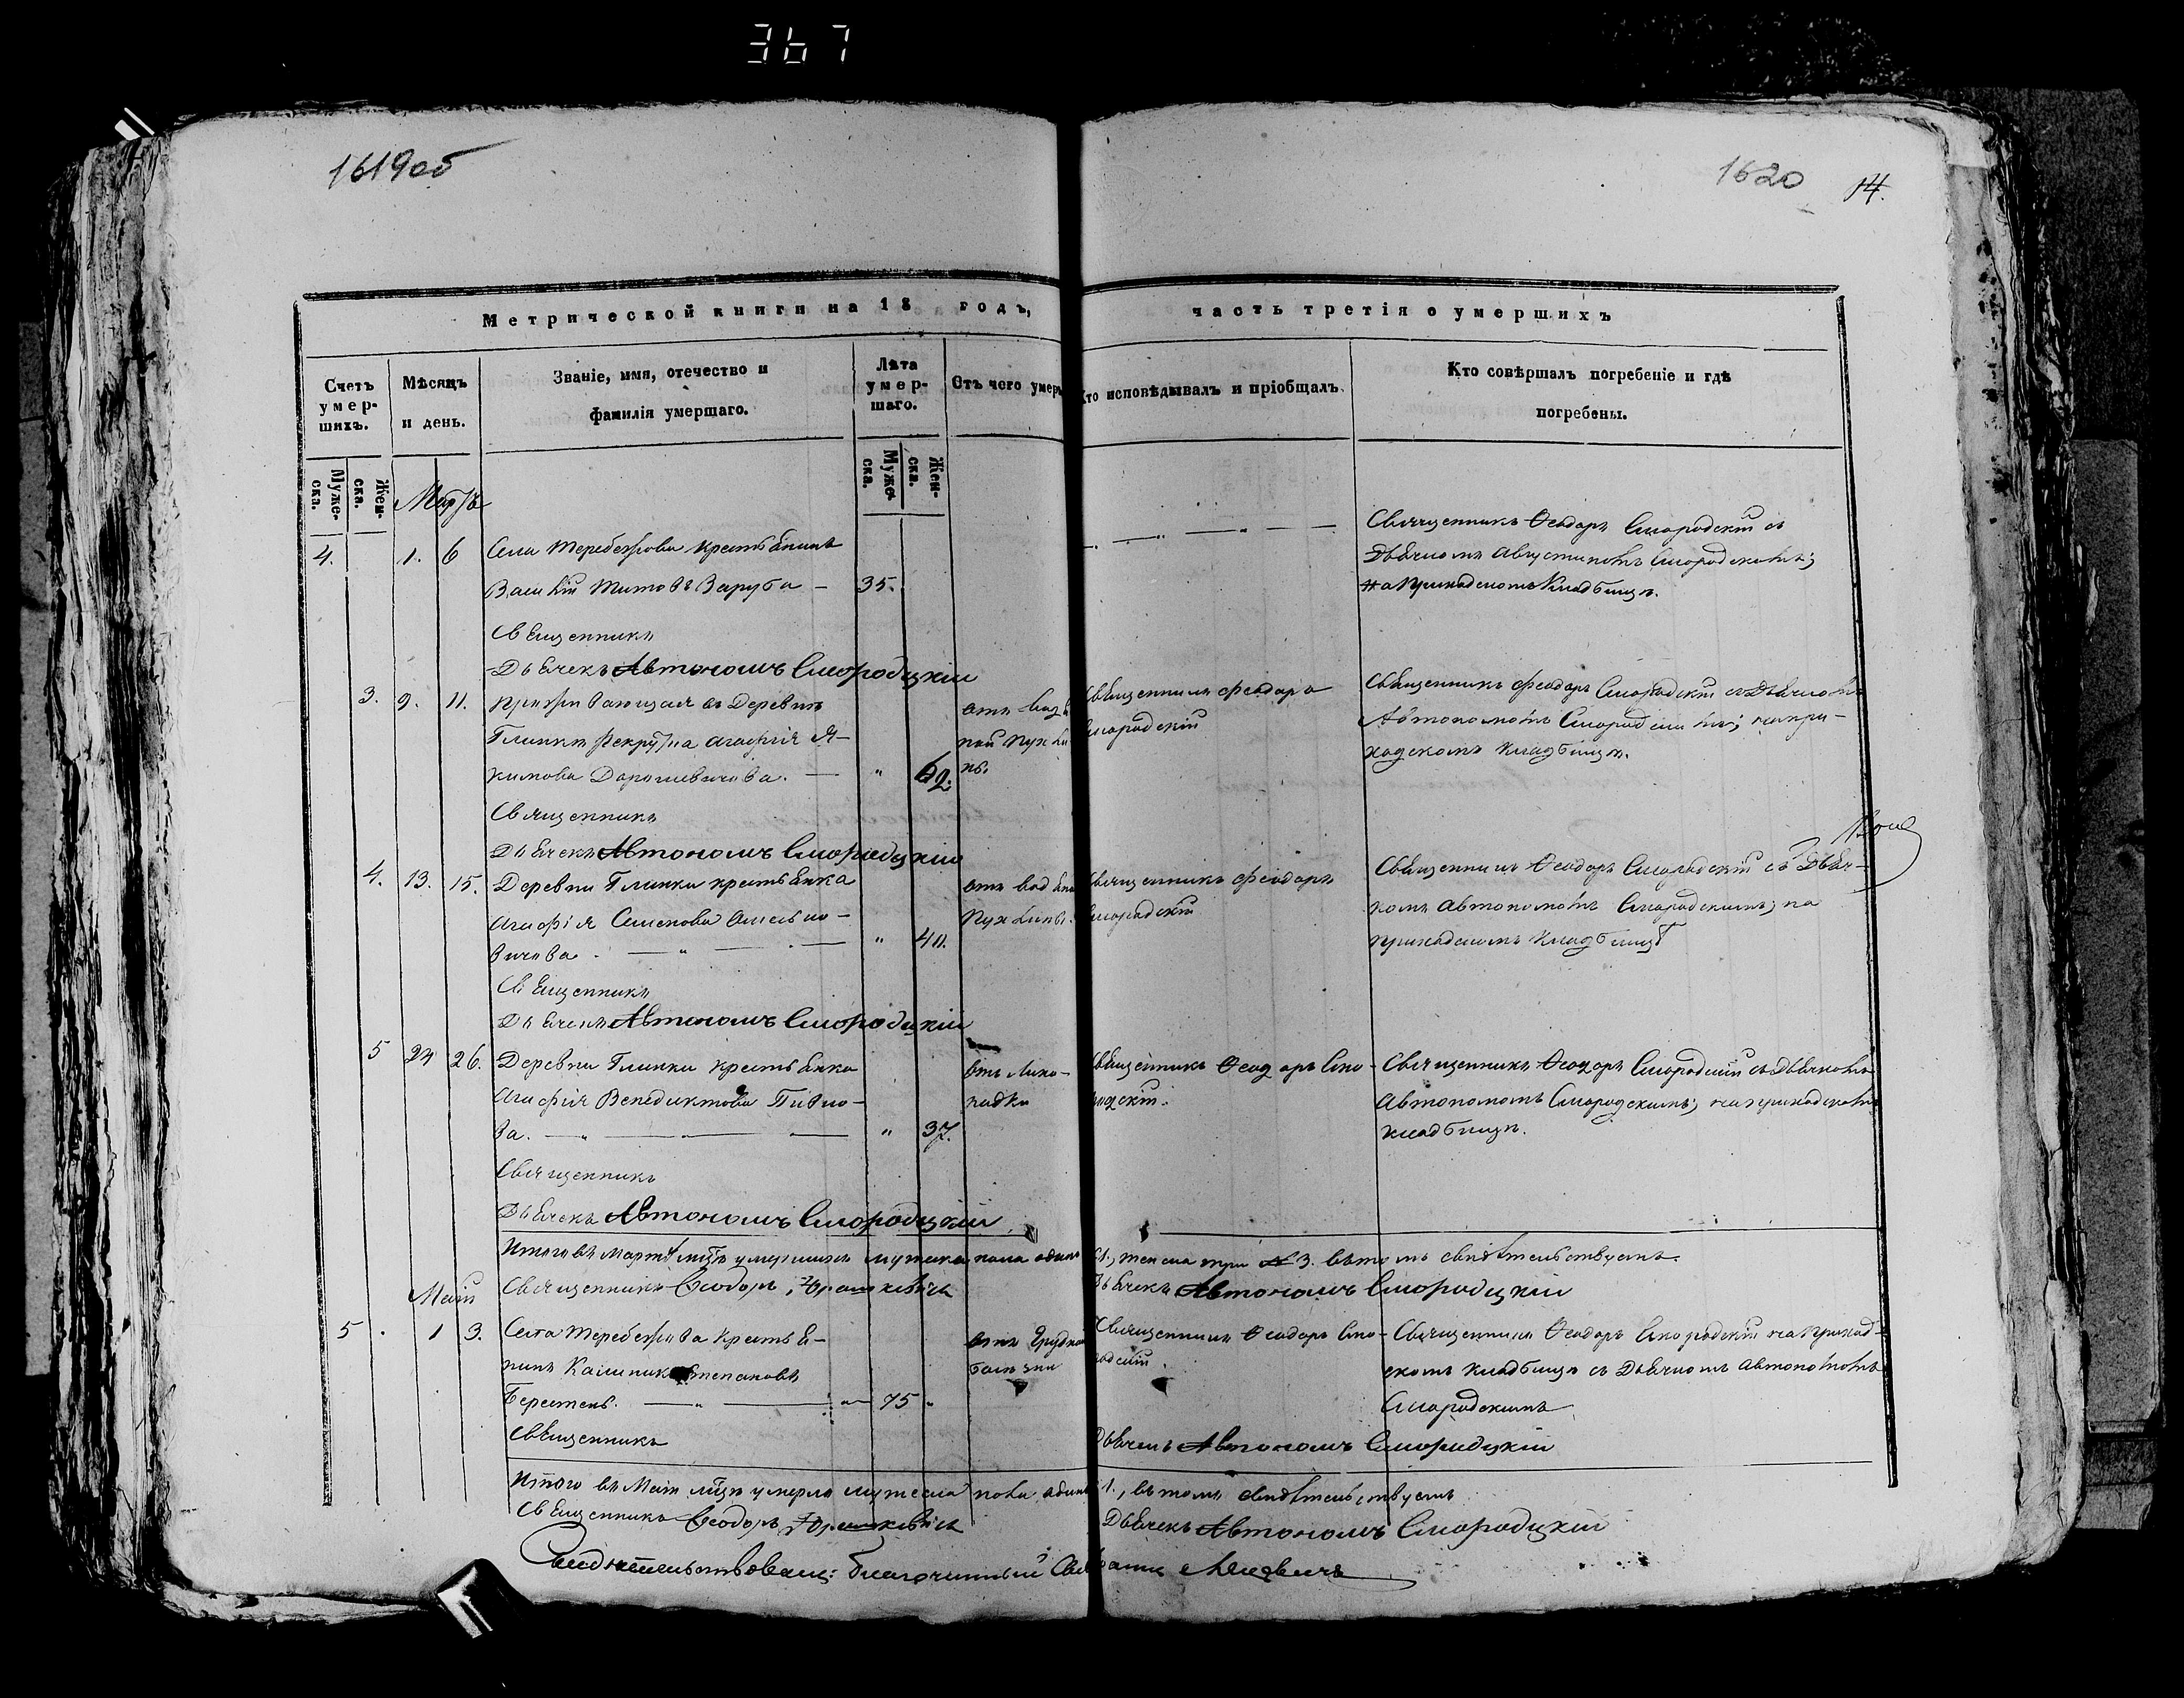 367
1619об
1620 14.
Метрической книги на 18 годъ,
часть третія о умершихъ
Счетъ умер-
шихъ.
Мѣсяцъ
и день.
Званіе, имя, отечество и
фамилія умершаго.
Лѣта
умер-
шаго.
Отъ чего умеръ
Кто исповѣдывалъ и пріобщалъ.
Кто совѣршалъ погребеніе и гдѣ
погребены.
Муже-
ска.
Жен-
ска.
Муже-
ска.
Жен-
ска.
Мартъ
4. 1. 6 Села Теребежова крестьянинъ
Василій Титовъ Заруба — 35.
Священникъ Ѳеодоръ Смородскій съ
Дьячкомъ Смородскимъ;
на приходскомъ кладбищѣ.
Священникъ
Дьячекъ Автономъ Смородцкій
3. 9. 11. Проживающая въ Деревнѣ
Глинки Рекрутка Агафія Я-
кимова Дорошевичова. — " 62.
отъ
ной пухли
ны.
Священникъ Феодоръ
Смородскій
Священникъ Феодоръ Смородскій съ Дьячкомъ
Автономомъ Смородскимъ; на при-
ходскомъ кладбищѣ.
Священникъ
Дьячекъ Автономъ Смородцкій
4. 13. 15. Деревни Глинки крестьянка
Агафія Семенова Омельно-
вичова. — " — " 40.
отъ водяной
пухлины.
Священникъ Феодоръ
Смородскій
Священникъ Ѳеодоръ Смородскій съ Дьяч-
комъ Автономомъ Смородскимъ; на
приходскомъ кладбищѣ
Священникъ
Дьячекъ Автономъ Смородцкій
5 24 26. Деревни Глинки крестьянка
Агафія Венедиктова Пивно-
ва. — " — " 37.
отъ Лихо-
радки
Священникъ Ѳеодоръ Смо-
родскій.
Священникъ Ѳеодоръ Смородскій съ Дьячкомъ
Автономомъ Смородскимъ; на приходскомъ
кладбищѣ.
Священникъ
Дьячекъ Автономъ Смородцкій
Итого въ Мартѣ мцѣ умершихъ мужска пола одинъ 1., женска три 3. въ томъ свидѣтельствуемъ
Священникъ Ѳеодоръ
Дьячекъ Автономъ Смородцкій
Маій
5 . 1 3. Села Теребежова крестья-
нинъ Калиникъ Степановъ
Берестень. — " — 75 "
отъ Грудной
болѣзни
Священникъ Ѳеодоръ Смо-
родскій.
Священникъ Ѳеодоръ Смородскій на приход-
скомъ кладбищѣ съ Дьячкомъ Автономомъ
Смородскимъ
Священникъ
Дьячекъ Автономъ Смородцкій
Итого въ Маіи мцѣ умерло мужеска пола одинъ 1., въ томъ свидѣтельствуемъ
Священникъ Ѳеодоръ
Дьячекъ Автономъ Смородцкій
Свидѣтельствовалъ: благочинный